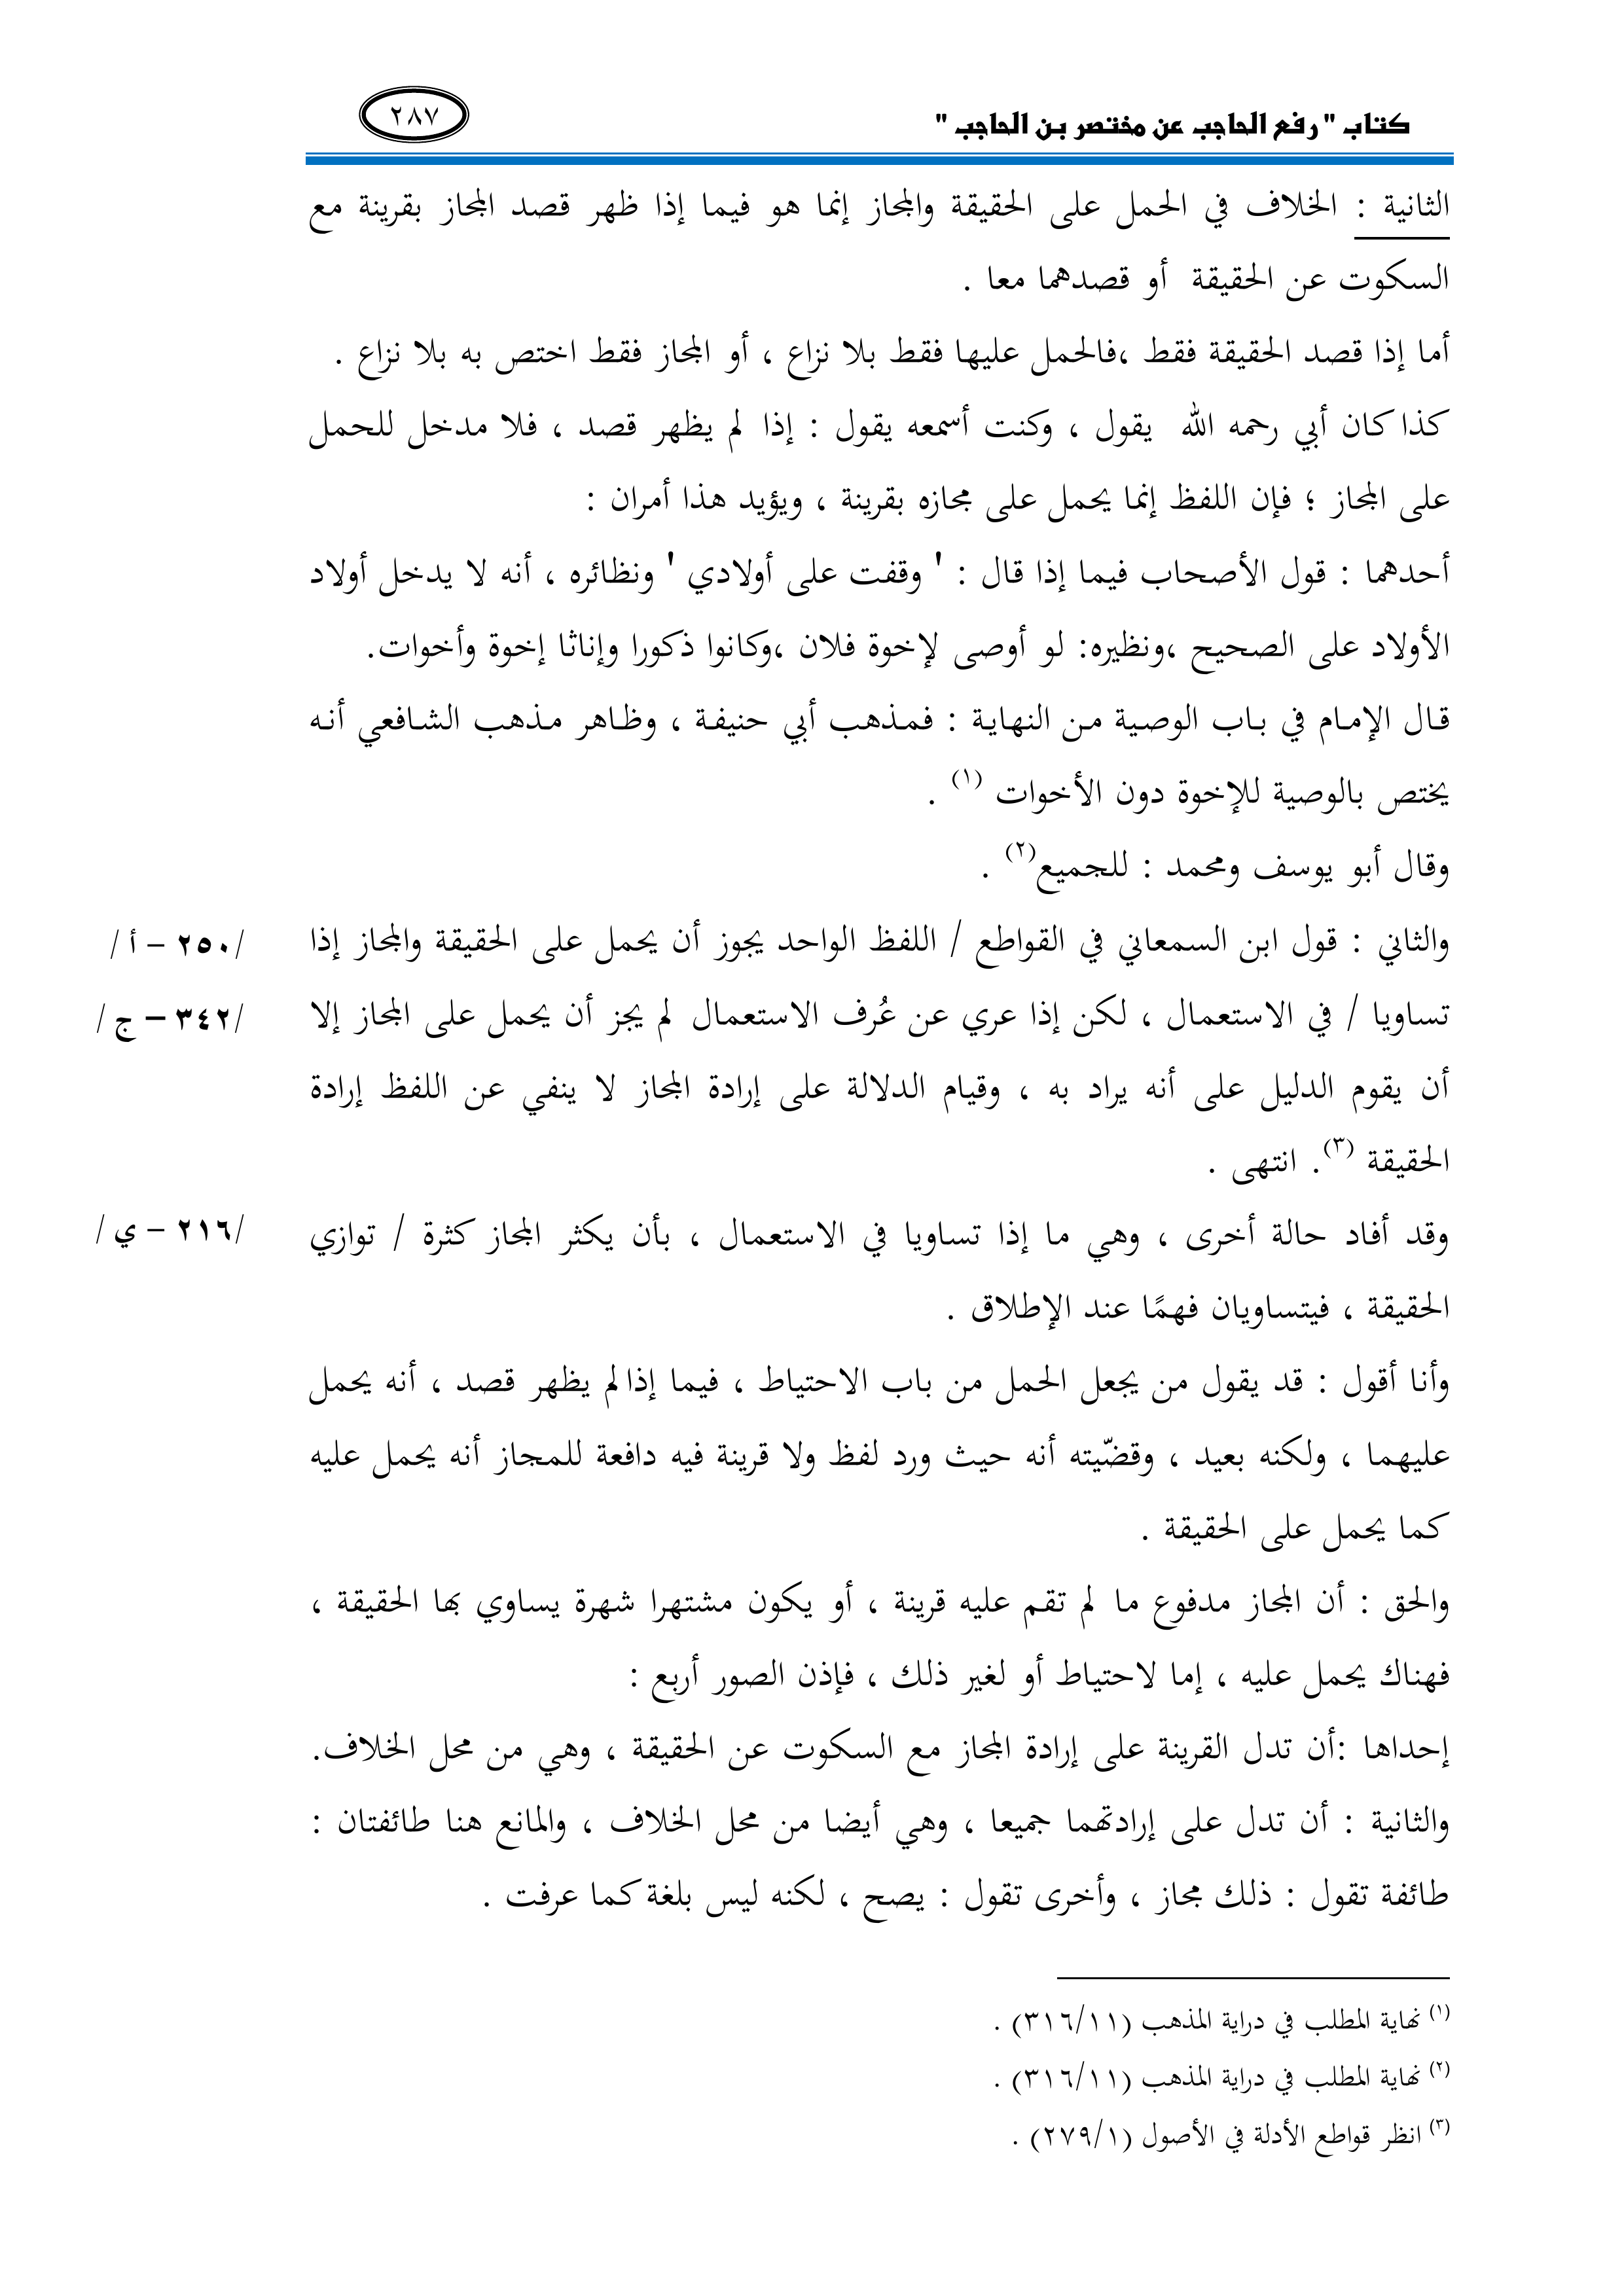 كتاب " رفع الحاجب عن مختصر بن الحاجب "
٢٨٧
الثانية : الخلاف في الحمل على الحقيقة والمجاز إنما هو فيما إذا ظهر قصد المجاز بقرينة مع
السكوت عن الحقيقة أو قصدهما معا .
أما إذا قصد الحقيقة فقط ،فالحمل عليها فقط بلا نزاع ، أو المجاز فقط اختص به بلا نزاع .
كذا كان أبي رحمه الله يقول ، وكنت أسمعه يقول : إذا لم يظهر قصد ، فلا مدخل للحمل
على المجاز ؛ فإن اللفظ إنما يحمل على مجازه بقرينة ، ويؤيد هذا أمران :
أحدهما : قول الأصحاب فيما إذا قال : ' وقفت على أولادي ' ونظائره ، أنه لا يدخل أولاد
الأولاد على الصحيح ،ونظيره: لو أوصى لإخوة فلان ،وكانوا ذكورا وإناثا إخوة وأخوات.
قال الإمام في باب الوصية من النهاية : فمذهب أبي حنيفة ، وظاهر مذهب الشافعي أنه
يختص بالوصية للإخوة دون الأخوات (١) .
وقال أبو يوسف ومحمد : للجميع(٢) .
والثاني : قول ابن السمعاني في القواطع / اللفظ الواحد يجوز أن يحمل على الحقيقة والمجاز إذا
/٢٥٠ – أ /
تساويا / في الاستعمال ، لكن إذا عري عن عُرف الاستعمال لم يجز أن يحمل على المجاز إلا
/٣٤٢ – ج /
أن يقوم الدليل على أنه يراد به ، وقيام الدلالة على إرادة المجاز لا ينفي عن اللفظ إرادة
الحقيقة (٣). انتهى .
وقد أفاد حالة أخرى ، وهي ما إذا تساويا في الاستعمال ، بأن يكثر المجاز كثرة / توازي
/٢١٦ – ي /
الحقيقة ، فيتساويان فهمًا عند الإطلاق .
وأنا أقول : قد يقول من يجعل الحمل من باب الاحتياط ، فيما إذا لم يظهر قصد ، أنه يحمل
عليهما ، ولكنه بعيد ، وقضّيته أنه حيث ورد لفظ ولا قرينة فيه دافعة للمجاز أنه يحمل عليه
كما يحمل على الحقيقة .
والحق : أن المجاز مدفوع ما لم تقم عليه قرينة ، أو يكون مشتهرا شهرة يساوي بها الحقيقة ،
فهناك يحمل عليه ، إما لاحتياط أو لغير ذلك ، فإذن الصور أربع :
إحداها :أن تدل القرينة على إرادة المجاز مع السكوت عن الحقيقة ، وهي من محل الخلاف.
والثانية : أن تدل على إرادتهما جميعا ، وهي أيضا من محل الخلاف ، والمانع هنا طائفتان :
طائفة تقول : ذلك مجاز ، وأخرى تقول : يصح ، لكنه ليس بلغة كما عرفت .
(١) نهاية المطلب في دراية المذهب (٣١٦/١١) .
(٢) نهاية المطلب في دراية المذهب (٣١٦/١١) .
(٣) انظر قواطع الأدلة في الأصول (٢٧٩/١) .